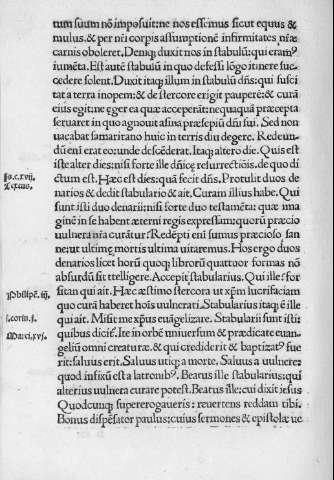 tum suum nō imposuit: ne nos essemus sicut equus &
mulus. & per nr̄i corpis assumptionē infirmitates nr̄æ
carnis aboleret. Demq; duxit nos in stabulū: qui eramꝰ
iumēta. Est autē stabulū in quo defessi lōgo itinere suc-
cedere solent. Duxit itaq; illum in stabulū dn̄s: qui susci
tat a terra inopem: & de stercore erigit pauperē: & curā
eius egit: ne ęger ea quæ acceperāt: nequaquā præcepta
seruaret in quo agnouit asina præsepiū dn̄i sui. Sed non
uacabat samaritano huic in terris diu degere. Redeun-
dū eni erat eo: unde descēderat. Itaq; altero die. Quis est
iste alter dies: nisi forte ille dn̄icę resurrectiōis. de quo di
ctum est. Hæc est dies: quā fecit dn̄s. Protulit duos de-
narios & dedit stabulario & ait. Curam illius habe. Qui
sunt isti duo denarii: nisi forte duo testamēta: quæ ima
ginē in se habent æterni regis expressam: quorū præcio
uulnera nr̄a curātur. Redēpti eni sumus præcioso san-
ne: ut ultimę mortis ultima uitaremus. Hos ergo duos
denarios licet horū quoq; librorū quattuor formas nō
absurdū sit ītelligere. Accepit stabularius. Qui ille: for
sitan qui ait. Hæc æstimo stercora ut xp̄m lucrifaciam
quo curā haberet hoīs uulnerati. Stabularius itaq; ē ille
qui ait. Misit me xp̄us euāgelizare. Stabularii sunt isti:
quibus dicit. Ite in orbē uniuersum & prædicate euan-
geliū omni creaturæ. & qui crediderit & baptizatꝰ fue
rit: saluus erit. Saluus utiq; a morte. Saluus a uulnere:
quod infixū est a latronibꝰ. Beatus ille stabularius: qui
alterius uulnera curare potest. Beatus ille: cui dixit iesus
Quodcunq; supererogaueris: reuertens reddam tibi.
Bonus dispēsator paulus: cuius sermones & epistolæ ue
Ps. c.xvij.
Philipē. iij.
i. corin. j.
Marci. xvj.